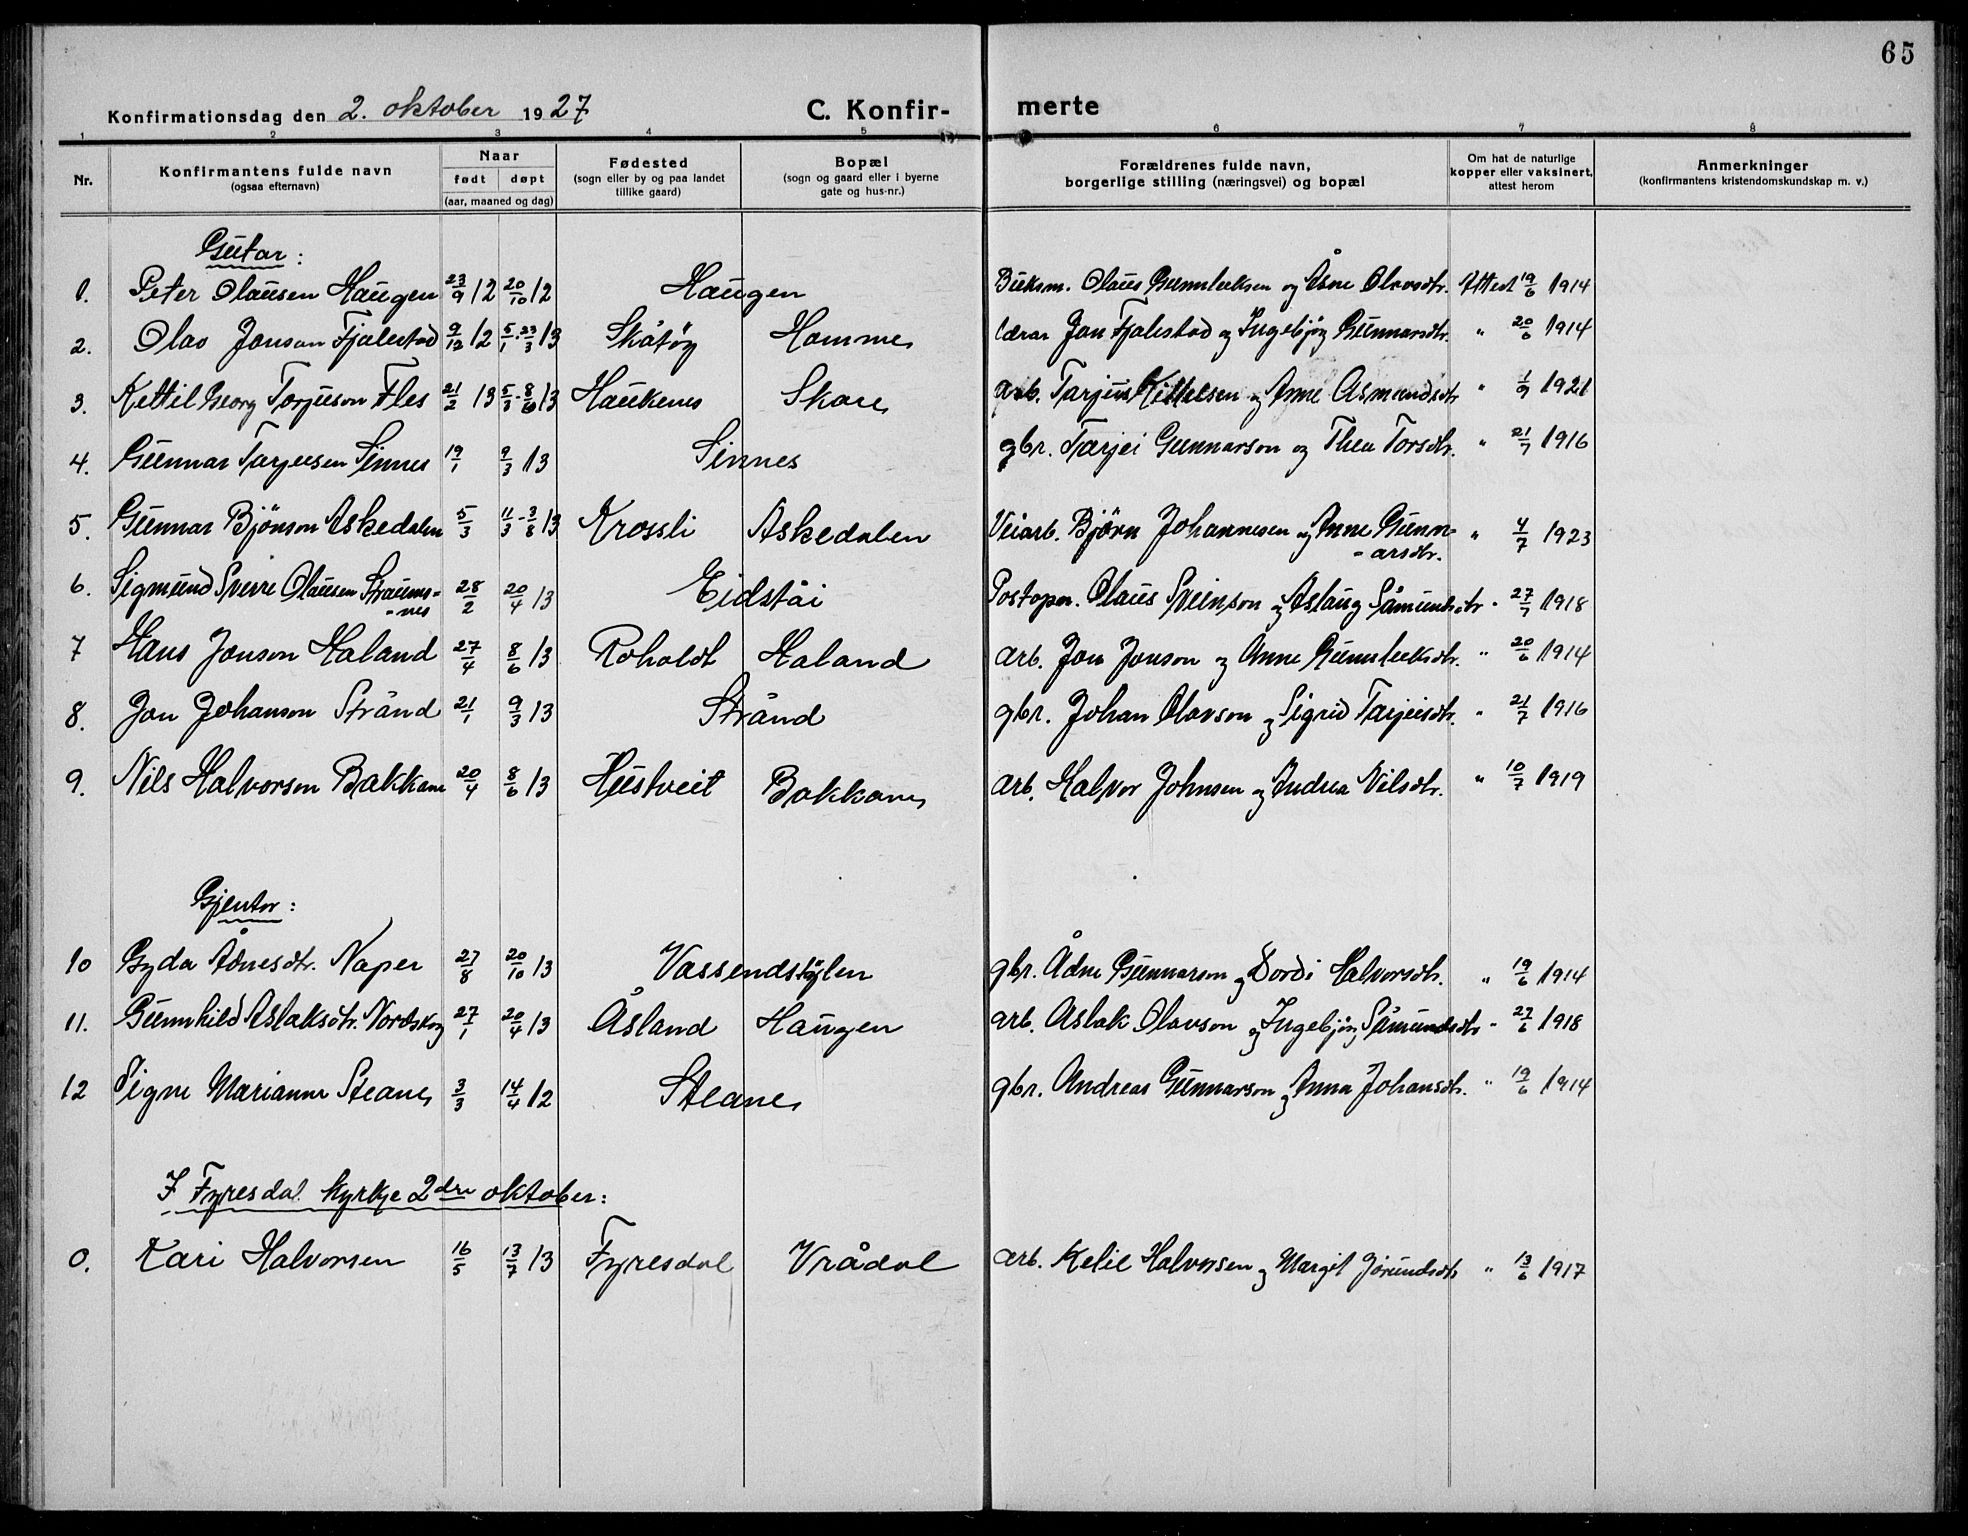 65
Konfirmationsdag den 2. oktober 1927 C. Konfir- merte
1 2 3 4 5 6 7 8
Nr. Konfirmantens fulde navn (ogsaa efternavn) Naar født døpt (aar, maaned og dag) Fødested (sogn eller by og paa landet tillike gaard) Bopæl (sogn og gaard eller i byerne gate og hus-nr.) Forældrenes fulde navn, borgerlige stilling (næringsvei) og bopæl Om hat de naturlige kopper eller vaksinert, attest herom Anmerkninger (konfirmantens kristendomskundskap m. v.)
Gutar:
1. Peter Olausen Haugen 23/9 12 20/10 12 Haugen Buksm. Olaus Gunnleiksen og Åsne Olavsdtr. Attest 19/6 1914
2. Olav Jonson Fjalestad 9/12 12 5/1 - 23/3 13 Skåtøy Hamme lærar Jon Fjalestad og Ingebjög Gunnarsdtr. " 20/6 1914
3. Kettil Georg Torjuson Fles 21/2 13 5/3 - 8/6 13 Haukenes Skare arb. Tarjus Kittelsen og Anne Asmundsdtr " 1/9 1921
4. Gunnar Tarjeisen Sinnes 19/1 9/3 13 Sinnes gbr. Tarjei Gunnarson og Thea Torsdtr. " 21/7 1916
5. Gunnar Bjönson Askedalen 5/3 11/3 - 3/8 13 Krossli Askedalen Veiarb. Björn Johannesen og Anne Gunn-
-arsdtr. " 4/7 1923
6. Sigmund Sverre Olausen Straums-
-nes 28/2 20/4 13 Eidståi Postopn. Olaus Sveinson og Aslaug Såmundsdtr " 27/7 1918
7 Hans Jonson Haland 27/4 8/6 13 Roholdt Haland arb. Jon Jonson og Anne Gunnleiksdtr. " 20/6 1914
8. Jon Johanson Strånd 21/1 9/3 13 Strånd gbr. Johan Olavson og Sigrid Tarjeisdtr. " 21/7 1916
9. Nils Halvorson Bakkane 20/4 8/6 13 Hustveit Bakkane arb. Halvor Johnsen og Andrea Nilsdtr. " 10/7 1919
Gjentor:
10 Gyda Ådnesdtr. Naper 27/8 20/10 13 Vassendstøylen gbr. Ådne Gunnarson og Dordi Halvorsdtr. " 19/6 1914
11. Gunnhild Aslaksdtr. Nordskog 27/1 20/4 13 Åsland Haugen arb. Aslak Olavson og Ingebjög Såmundsdtr " 27/6 1918
12 Signe Marianne Steane 3/3 14/4 12 Steane gbr. Andreas Gunnarson og Anna Johansdtr. " 19/6 1914
I Fyresdal kyrkje 2dre oktober:
0. Kari Halvorsen 16/5 13/7 13 Fyresdal Vrådal arb. Kelie Halvorsen og Margit Jörundsdtr " 13/6 1917